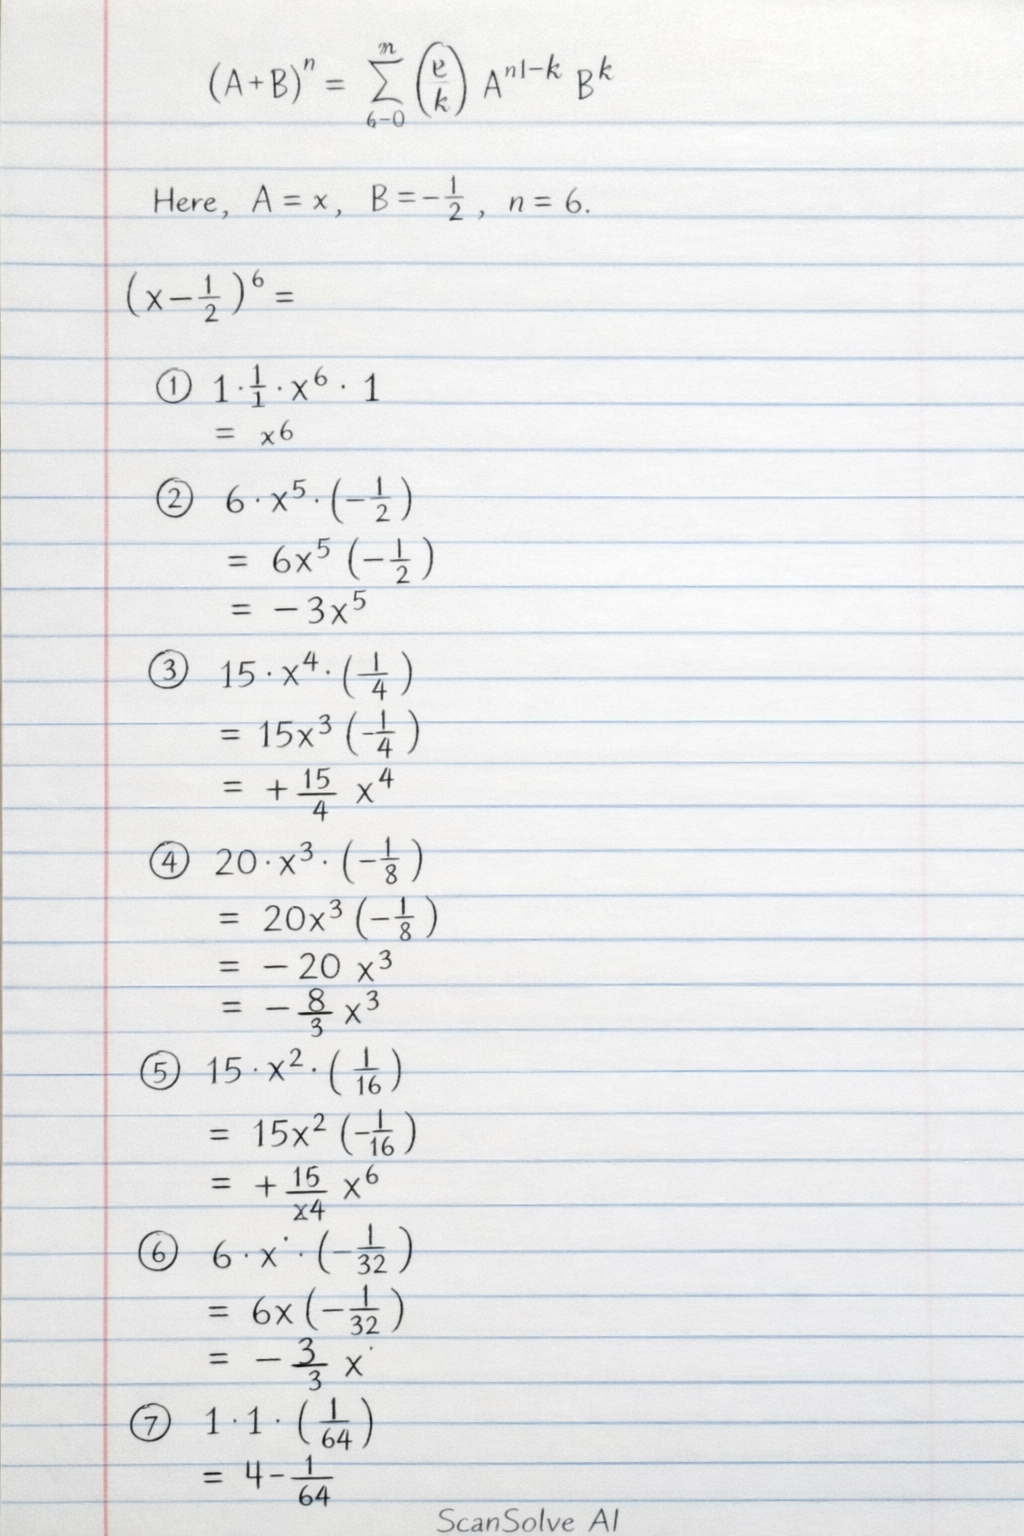 (A+B)ⁿ = ∑ (e/k) A^{n|-k} B^k
m
6-0
Here, A = x, B = -1/2, n = 6.
(x - 1/2)⁶ =
① 1 · 1/1 · x⁶ · 1
= x⁶
② 6 · x⁵ · (-1/2)
= 6x⁵ (-1/2)
= -3x⁵
③ 15 · x⁴ · (1/4)
= 15x³ (-1/4)
= + 15/4 x⁴
④ 20 · x³ · (-1/8)
= 20x³ (-1/8)
= -20 x³
= - 8/3 x³
⑤ 15 · x² · (1/16)
= 15x² (-1/16)
= + 15/x4 x⁶
⑥ 6 · x˙ · (-1/32)
= 6x (-1/32)
= - 3/3 x˙
⑦ 1 · 1 · (1/64)
= 4 - 1/64
ScanSolve AI